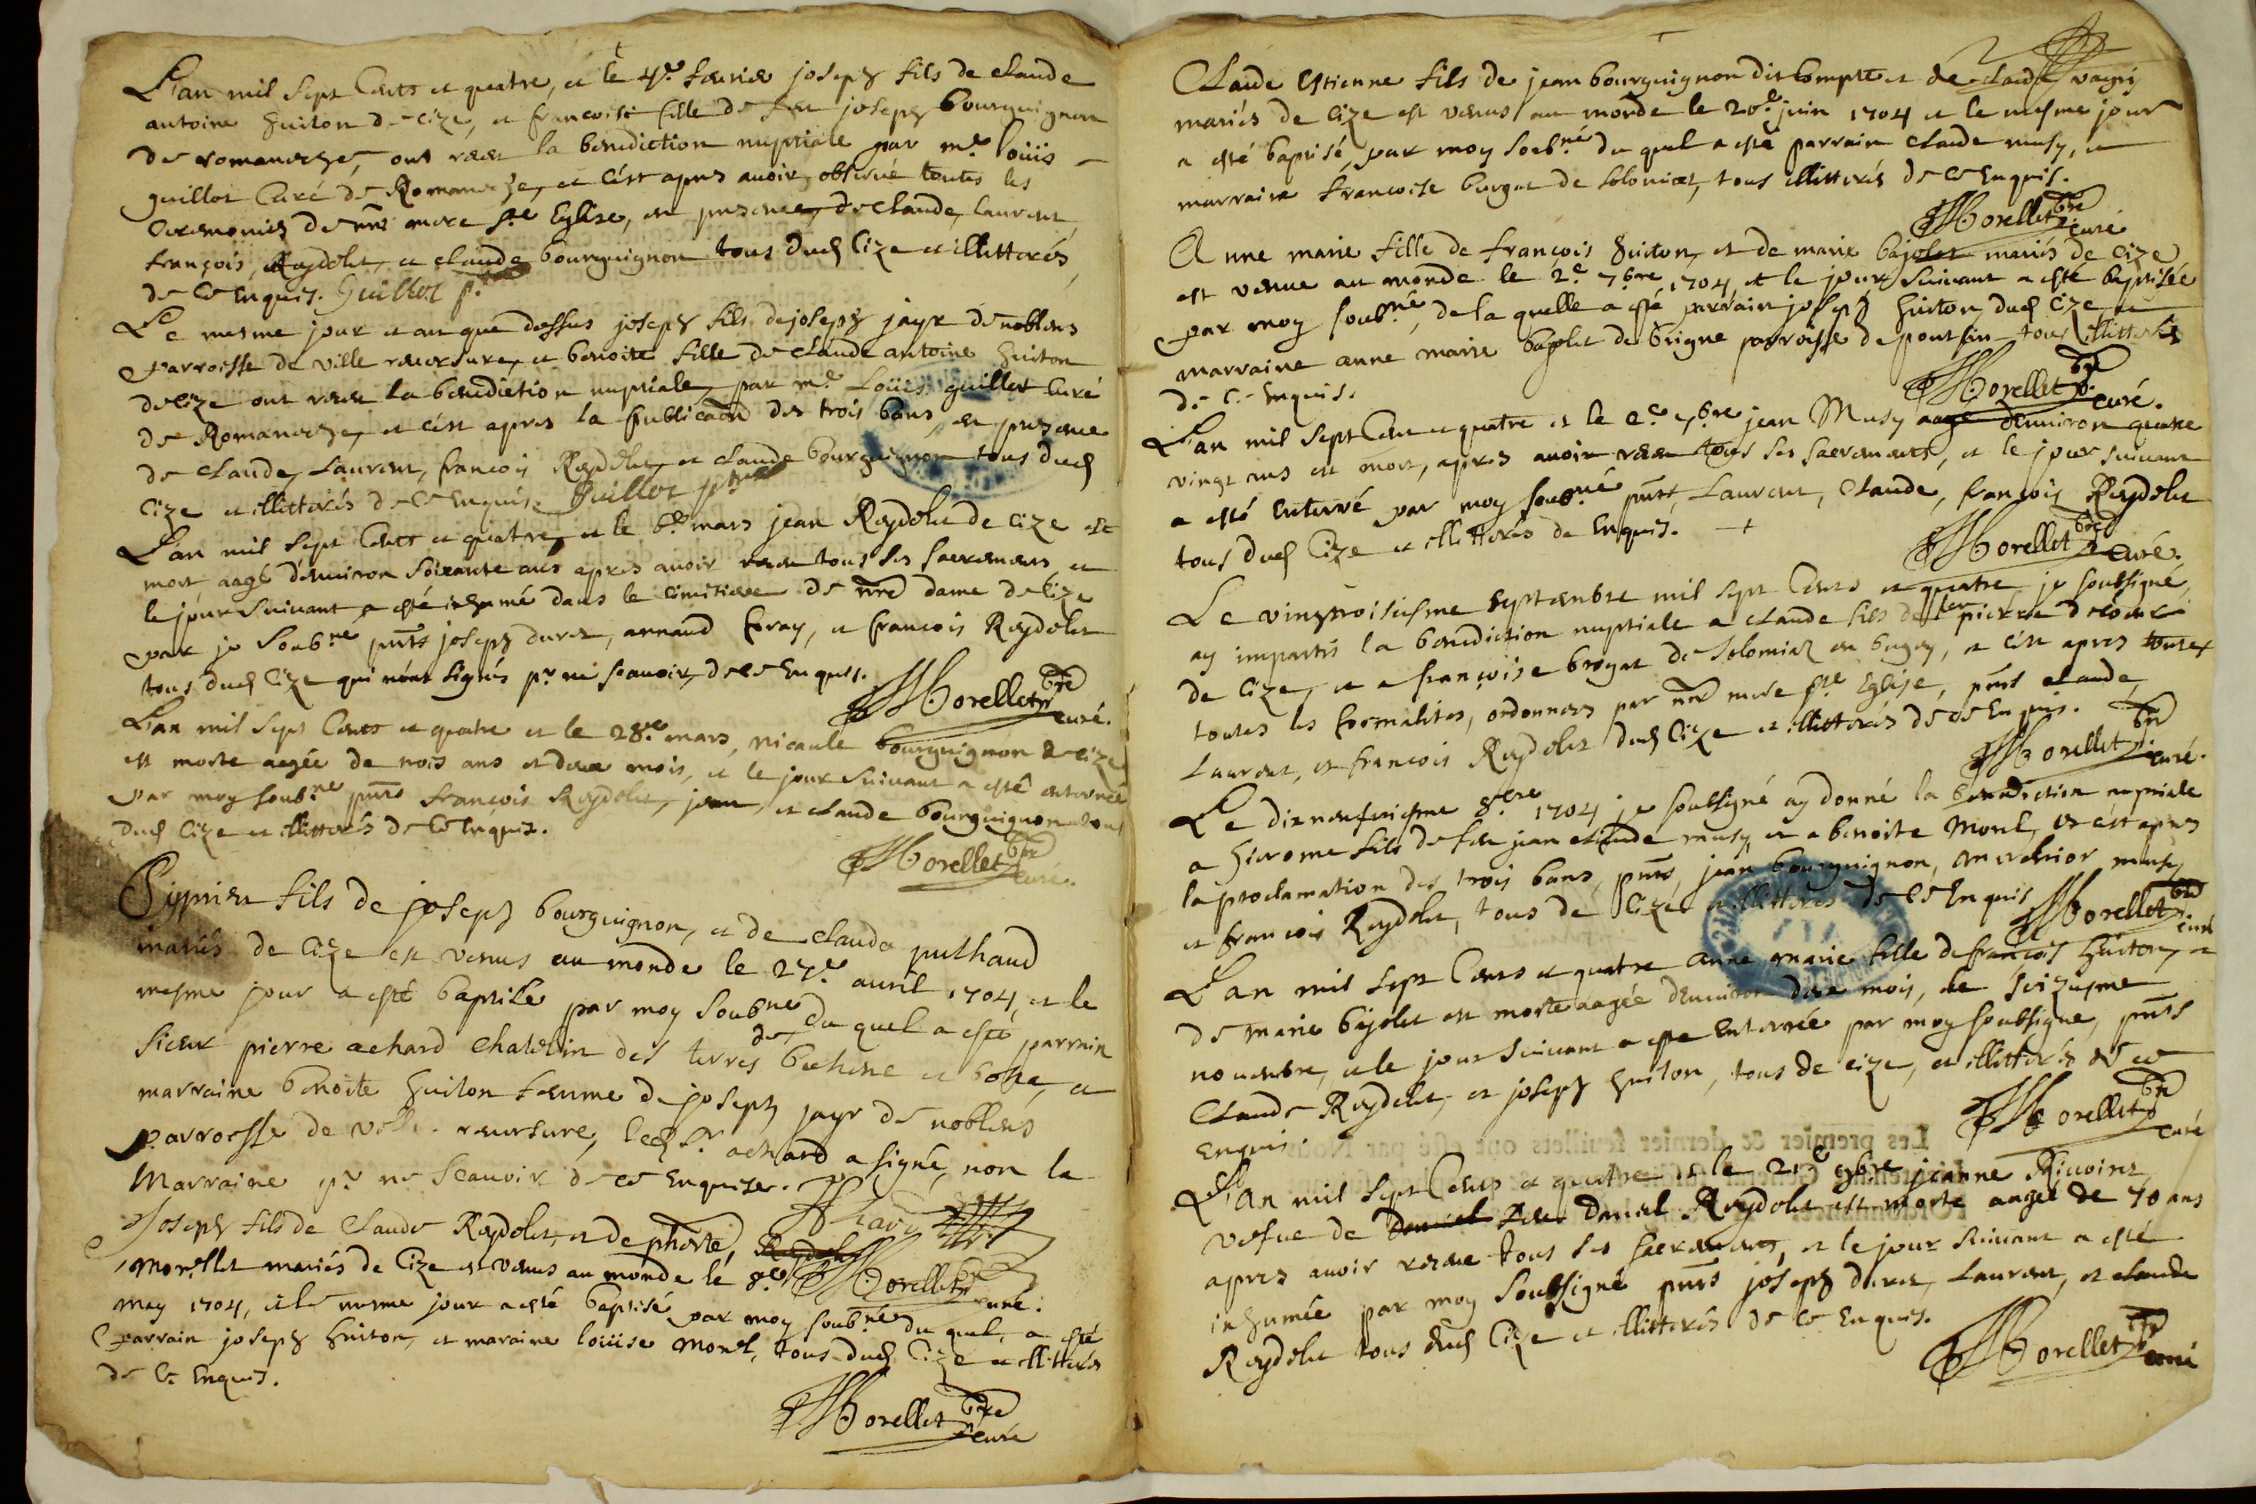 L'an mil sept cents et quatre, et le 4e. fevrier joseph fils de claude
antoine huiton de cize, et francoise fille de feu joseph bourguignon
de romaneche, ont receu la benediction nuptiale par mre. loüis
guillot curé de Romaneche, et c'est apres avoir observé toutes les
ceremonies de nrē mere ste Eglise, en presence de claude, laurent,
françois, Reydelet, et claude bourguignon tous dud cize et illitterés,
de ce Enquis. Guillot p.
Le mesme jour et an que dessus joseph fils de joseph jayr de noblens
parroisse de ville reversure, et benoite fille de claude antoine huiton
de cize ont receu la benediction nuptiale, par mre. Loüis guillot curé
de Romaneche, et c'est apres la publicaōn des trois bans, en presence
de claude, Laurent, françois Reydelet, et claude bourguignon tous dud
cize et illitterés de ce Enquis. Guillot ptre
L'an mil sept cents et quatre, et le 6e. mars jean Reydelet de cize est
mort aagé d'environ soixante ans apres avoir receu tous ses sacremens, et
le jour suivant a esté inhumé dans le cimitiere de nrē dame de cize
par je soubné. pnts joseph duret, arnaud foray, et françois Reydelet
tous dud cize qui n'ont signés pr. ne scavoir, de ce Enquis.
Morellet ptre curé.
L'an mil sept cents et quatre et le 28e. mars, nicaule bourguignon de cize
est morte aagée de trois ans et deux mois, et le jour suivant a esté enterrée
par moy soubné pnts françois Reydelet, jean, et claude bourguignon tous
dud cize et illitterés de ce Enquis.
Morellet ptre curé.
Cyprien fils de joseph bourguignon, et de claude puthaud
mariés de cize est venus au monde le 27e. avril 1704, et le
mesme jour a esté baptisé par moy soubné du quel a esté parrain
sieur pierre achard chatelain des terres de buhene et bohas, et
marraine benoite huiton femme de joseph jayr de noblens
parroisse de ville reversure, led sr. achard a signé, non la
Marraine pr. ne scavoir de ce Enquise. Achard
Joseph fils de claude Reydelet, et de pherte,
Morellet mariés de cize est venus au monde le 8e.
Morellet ptre curé.
may 1704, et le mesme jour a esté baptisé par moy soubné du quel, a esté
parrain joseph huiton, et maraine loüise monet, tous dud cize et illitterés
de ce Enquis.
Morellet ptre curé
Claude Estienne fils de jean bourguignon dit compte et de claude vagny
mariés de cize est venus au monde le 20e. juin 1704 et le mesme jour
a esté baptisé par moy soubné du quel a esté parrain claude musy, et
marraine francoise burgat de solomiat, tous illitterés de ce Enquis.
Morellet ptre curé
Anne marie fille de françois huiton, et de marie bajolet mariés de cize
est venue au monde le 2e 7bre 1704, et le jour suivant a esté baptisée
par moy soubné, de la quelle a esté parrain joseph huiton, dud cize, et
marraine anne marie bajolet de brigne parroisse de pont sin tous illitterés
de ce Enquis.
Morellet ptre curé.
L'an mil sept cens et quatre et le 2e. 7bre jean Musy aagé d'environ quatre
vingt ans est mort, apres avoir receu tous ses sacremants, et le jour suivant
a esté Enterré par moy soubné pnts, Laurent, claude, françois Reydelet
tous dud cize et illitterés de Enquis.
Morellet ptre curé.
Le vingtroisiesme septembre mil sept cents et quatre je soubsigné,
ay impartis la benediction nuptiale a claude fils de feu pierre
de cize, et a françoise brogat de solomiat en bugey, et c'est apres toutes
toutes les formalites, ordonnees par nrē mere ste Eglise, pnts claude,
Laurent, et françois Reydelet dud cize et illitterés de ce Enquis.
Morellet ptre curé.
Le dixneufviesme 8bre 1704 je soubsigné ay donné la benediction nuptiale
a hierome fils de feu jean claude musy, et a benoite Monet, et c'est apres
la proclamation des trois bans, pnts, jean bourguignon, melchior musy
et françois Reydelet, tous de cize, et illitterés de ce Enquis
Morellet ptre curé
L'an mil sept cents et quatre anne marie fille de françois huiton, et
de marie bajolet est morte aagée d'environ deux mois, le seiziesme
novembre, et le jour suivant a esté Enterrée par moy soubsigné, pnts
claude Reydelet, et joseph huiton, tous de cize, et illitterés de ce
Enquis.
Morellet ptre curé
L'an mil sept cents et quatre et le 21e 9bre jeanne
vesfve de feu daniel Reydelet est morte aagée de 70 ans
apres avoir receue tous ses sacremants, et le jour suivant a esté
inhumée par moy soubsigné pnts joseph duret, Laurent, et claude
Reydelet tous dud cize et illitterés de ce Enquis.
Morellet ptre curé